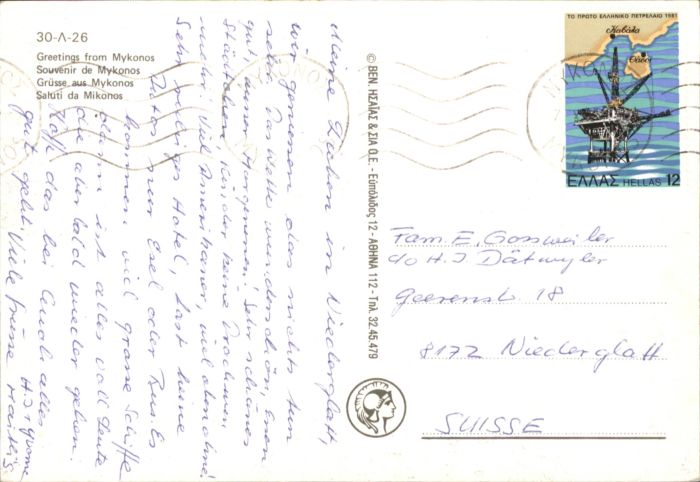 30-Λ-26
Greetings from Mykonos
Souvenir de Mykonos
Grüsse aus Mykonos
Saluti da Mikonos
Meine Lieben in Niederglatt,
wir geniessen das nichts tun
sehr. Das Wetter wunderschön, Essen
gut, ausser Hungrige! Sehr schönes
Städtchen, leider keine Drachmen
mehr. Viel Amerikaner, viel ohne!
Sehr ruhiges Hotel, fast keine
Autos nur Esel oder Bus. Es
kommen viel grosse Schiffe
dann ist alles voll Leute
die aber bald wieder gehen.
Hoffe das bei Euch alles
gut geht. Viele Grüsse H.J. +
© ΒΕΝ. ΗΣΑΪΑΣ & ΣΙΑ Ο.Ε. - Ευπόλιδος 12 - ΑΘΗΝΑ 112 - Τηλ. 32.45.479
ΤΟ ΠΡΩΤΟ ΕΛΛΗΝΙΚΟ ΠΕΤΡΕΛΑΙΟ 1981
Καβάλα
Θάσος
ΕΛΛΑΣ HELLAS 12
Fam. E. Gossweiler
c/o H. J Dätwyler
Geerenstr 18
8172 Niederglatt
SUISSE